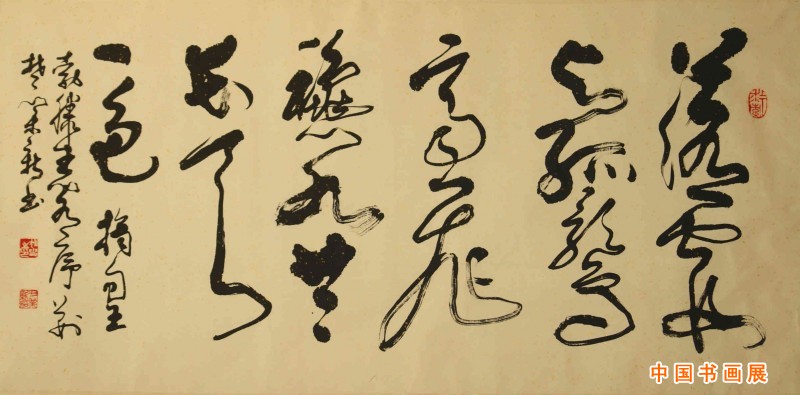 落霞
与孤鹜
齊飛
秋水共
长天
一色 摘自王
勃滕王阁序
书
中国书画展